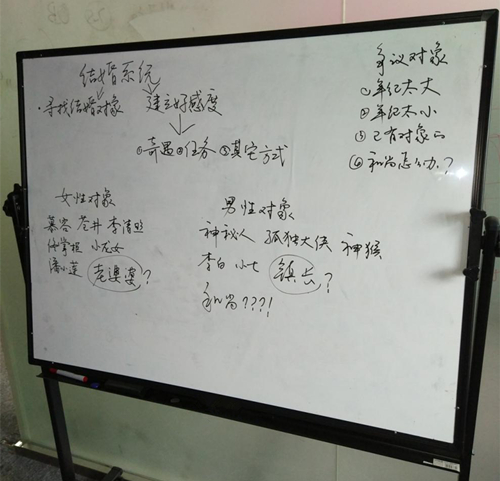 结婚系统
·寻找结婚对象 建立好感度
①奇遇②任务③其它方式
争议对象
①年纪太大
②年纪太小
③已有对象的
④和尚怎么办？
女性对象
慕容 苍井 李清照
掌柜 小龙女
潘小莲 老婆婆？
男性对象
神秘人 孤独大侠 神猴
李白 小七 镇长？
和尚???!